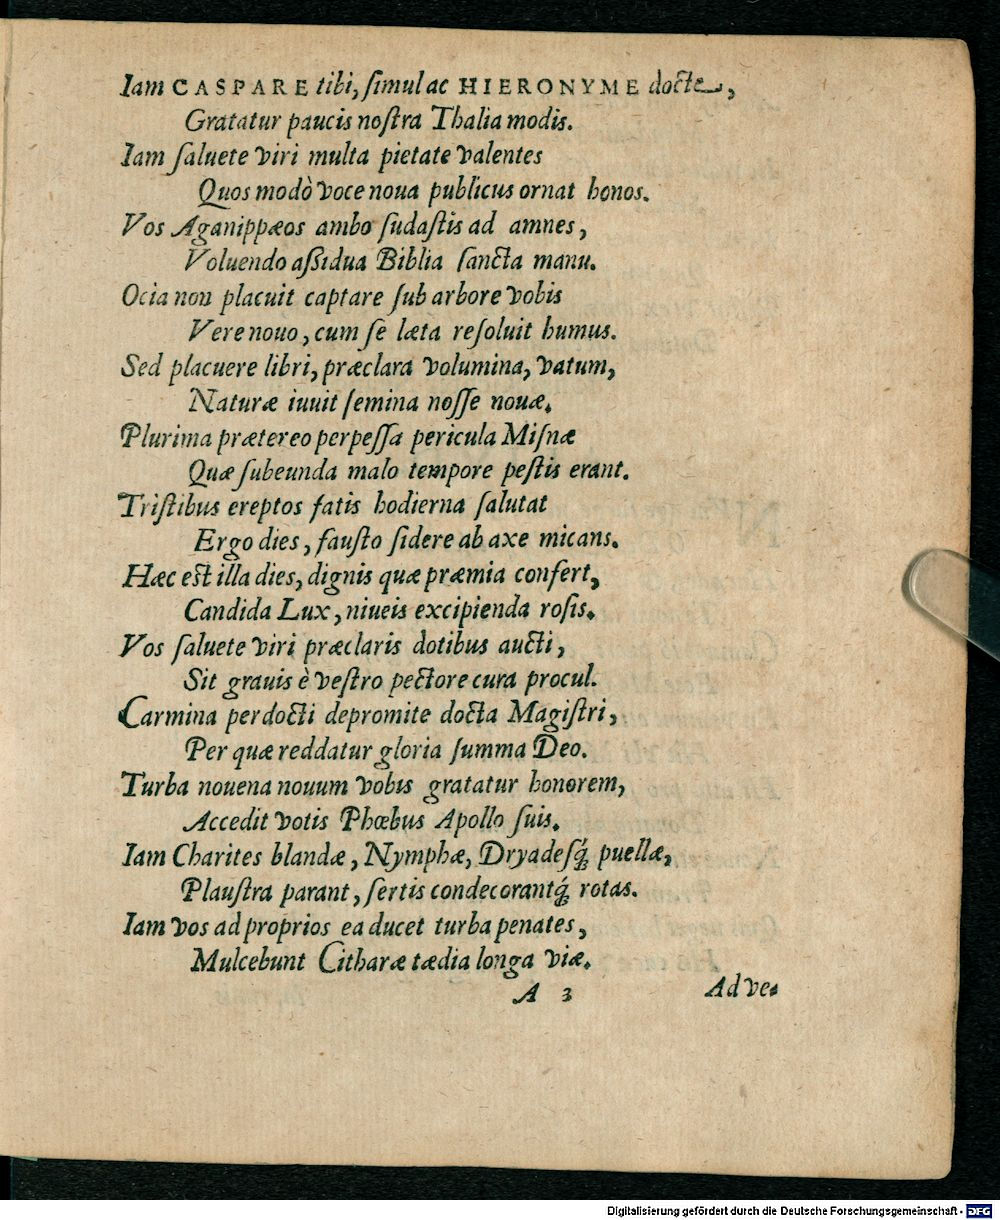 Iam CASPARE tibi, ſimul ac HIERONYME docte,
Gratatur paucis noſtra Thalia modis.
Iam ſaluete viri multa pietate valentes
Quos modò voce noua publicus ornat honos.
Vos Aganippæos ambo ſudaſtis ad amnes,
Voluendo aßidua Biblia ſancta manu.
Ocia non placuit captare ſub arbore vobis
Vere nouo, cum ſe læta reſoluit humus.
Sed placuere libri, præclara volumina, vatum,
Naturæ iuuit ſemina noſſe nouæ.
Plurima prætereo perpeſſa pericula Miſnæ
Quæ ſubeunda malo tempore peſtis erant.
Triſtibus ereptos fatis hodierna ſalutat
Ergo dies, fauſto ſidere ab axe micans.
Hæc eſt illa dies, dignis quæ præmia confert,
Candida Lux, niueis excipienda roſis.
Vos ſaluete viri præclaris dotibus aucti,
Sit grauis è veſtro pectore cura procul.
Carmina perdocti depromite docta Magiſtri,
Per quæ reddatur gloria ſumma Deo.
Turba nouena nouum vobis gratatur honorem,
Accedit votis Phœbus Apollo ſuis.
Iam Charites blandæ, Nymphæ, Dryadeſq́; puellæ,
Plauſtra parant, ſertis condecorantq́; rotas.
Iam vos ad proprios ea ducet turba penates,
Mulcebunt Citharæ tædia longa viæ.
A 3 Ad ve-
Digitalisierung gefördert durch die Deutsche Forschungsgemeinschaft - DFG